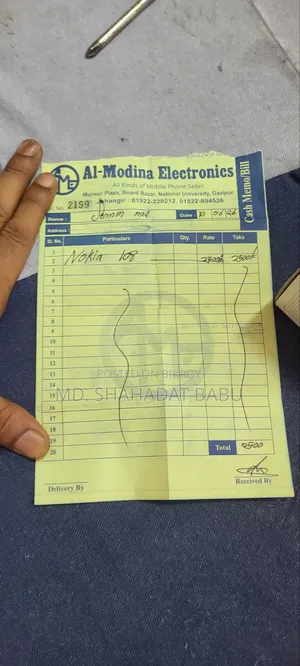 Al-Modina Electronics
All Kinds of Mobile Phone Seller
Munsur Plaza, Board Bazar, National University, Gazipur.
Jahangir : 01922-220212, 01822-894526
Cash Memo/Bill
No. 2199
Name :
Date : 10 06 26
Address :
Sl. No. Particulars Qty. Rate Taka
1 Nokia 108 2500/- 2500/-
2
3
4
5
6
7
8
9
10
11
12
13
14
15
16
17
18
19
20
Total 2500
POSTED ON BIKROY
MD. SHAHADAT BABU
Delivery By Received By